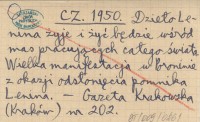 CZ. 1950. Dzieło Le-
nina żyje i żyć będzie wśród
mas pracujących całego świata
Wielka manifestacja w Poroninie
z okazji odsłonięcia pomnika
Lenina. – Gazeta Krakowska
(Kraków) nr 202.